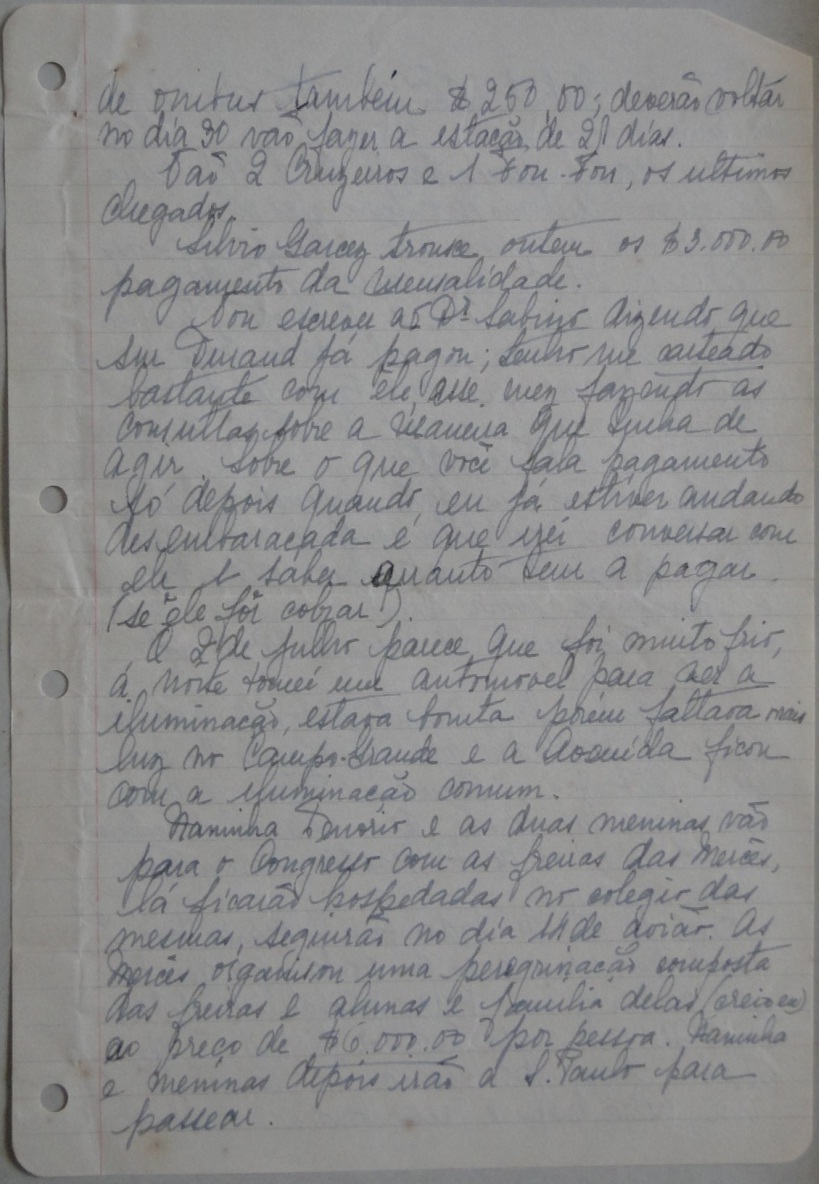 de onibus tambem $ 250,00; deverão voltar
no dia 30 vão fazer a estação de 21 dias.
Vaõ 2 Cruzeiros e 1 Fon-Fon, os ultimos
chegados.
Silvio Garcez trouxe ontem os $3.000.00
pagamento da mensalidade.
Vou escrever ao Dr. Sabino dizendo que
seu Durand já pagou; tenho me carteado
bastante com ele, esse mez fazendo as
consultas sobre a maneira que tinha de
agir. Sobre o que você fala pagamento
só depois quando, eu já estiver andando
desembaraçada é que irei conversar com
ele e saber quanto tem a pagar.
(se ele fôr cobrar).
O 2 de Julho parece que foi muito frio,
á noite tomei um automovel para ver a
iluminação, estava bonita porem faltava mais
luz no Campo-Grande e a Avenida ficou
com a iluminação comum.
Naninha Tenorio e as duas meninas vão
para o Congresso com as freiras das Mercês,
lá ficarão hospedadas no colegio das
mesmas, seguirão no dia 14 de avião. As
Mercês organison uma peregrinação composta
das freiras e alunas e familia delas (creio eu)
ao preço de $6.000.00 por pessoa. Naninha
e meninas depois irão a S. Paulo para
passear.